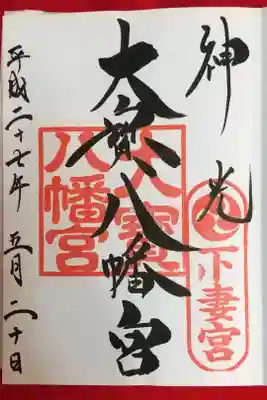 神光
下妻宮
大寳八幡宮
大寳
八幡宮
平成二十七年 五月二十日